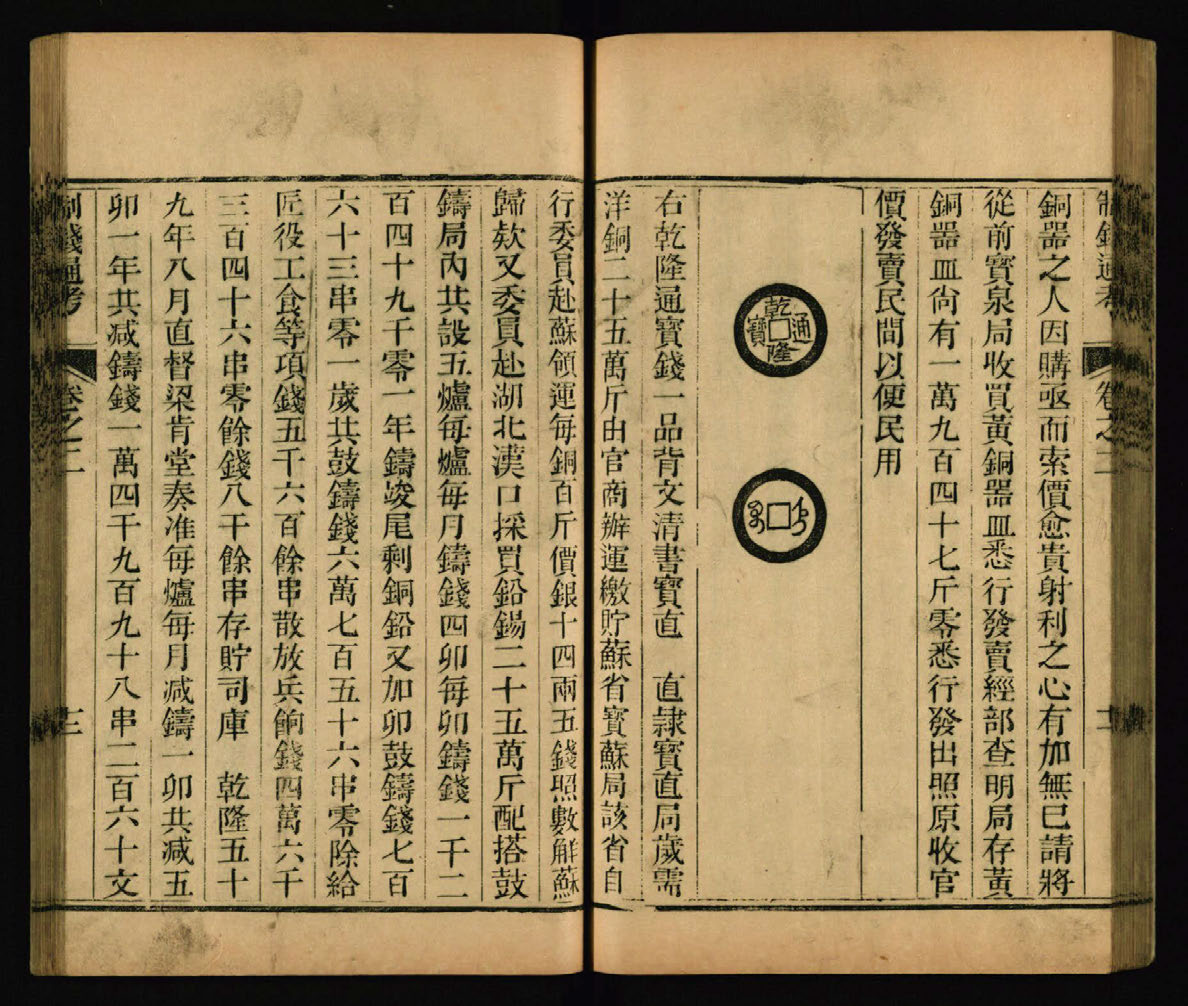 制錢通考
卷之二
銅器之人因購亟而索價愈貴射利之心有加無已請將
從前寶泉局收買黃銅器皿悉行發賣經部查明局存黃
銅器皿尙有一萬九百四十七斤零悉行發出照原收官
價發賣民間以便民用
乾隆通寶
右乾隆通寶錢一品背文清書寶直　直隸寶直局歲需
洋銅二十五萬斤由官商辦運繳貯蘇省寶蘇局該省自
行委員赴蘇領運每銅百斤價銀十四兩五錢照數解蘇
歸欵又委員赴湖北漢口採買鉛錫二十五萬斤配搭鼓
鑄局內共設五爐每爐每月鑄錢四卯每卯鑄錢一千二
百四十九千零一年鑄竣尾剩銅鉛又加卯鼓鑄錢七百
六十三串零一歲共鼓鑄錢六萬七百五十六串零除給
匠役工食等項錢五千六百餘串散放兵餉錢四萬六千
三百四十六串零餘錢八千餘串存貯司庫　乾隆五十
九年八月直督梁肯堂奏准每爐每月减鑄一卯共减五
卯一年共减鑄錢一萬四千九百九十八串二百六十文
制錢通考
卷之二
三